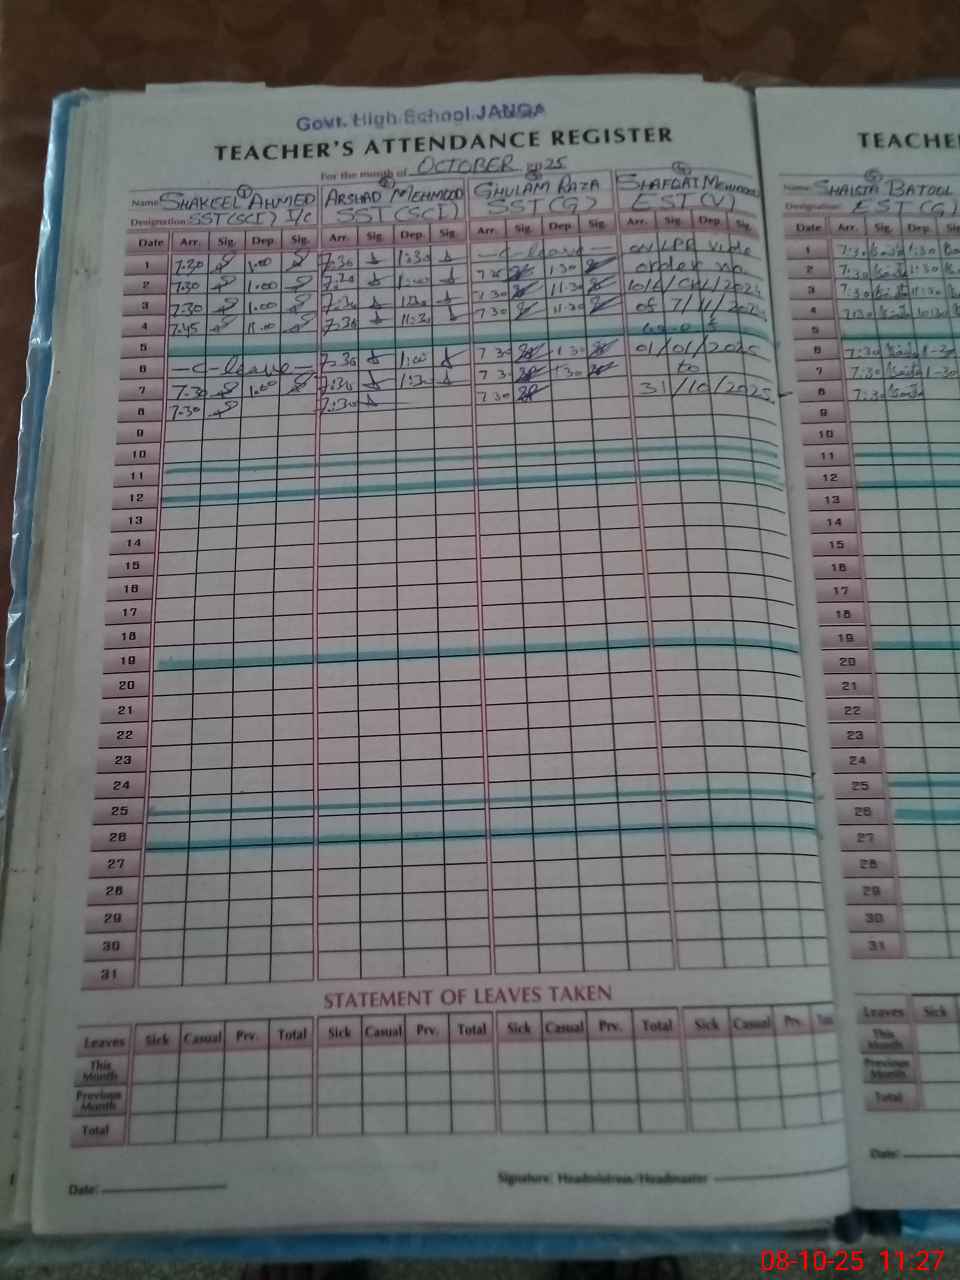 Govt. High School JANGA
TEACHER'S ATTENDANCE REGISTER
For the month of OCTOBER 2025
Name SHAKEEL AHMED ARSHAD MEHMOOD GHULAM RAZA SHAFQAT MEHMOOD
Designation SST (SCI) I/c SST (SCI) SST (G) EST (V)
Date Arr. Sig. Dep. Sig. Arr. Sig. Dep. Sig. Arr. Sig. Dep. Sig. Arr. Sig. Dep. Sig.
1 7.30 1.00 7:30 1:30 —C-leave— on LPR vide
2 7.30 1.00 7:30 1:00 7 30 1.30 order no.
3 7.30 1.00 7:30 7 30 11.30
4 7.45 11.00 7:30 11:30 7 30 11.30 of 7/11/2024
5
6 —C-leave— 7:30 1:00 7 30 1 30 01/01/2025
7 7.30 1.00 7:30 1:30 7 30 1 30 to
8 7.30 7:30 7 30 31/10/2025
9
10
11
12
13
14
15
16
17
18
19
20
21
22
23
24
25
26
27
28
29
30
31
STATEMENT OF LEAVES TAKEN
Leaves Sick Casual Prv. Total Sick Casual Prv. Total Sick Casual Prv. Total Sick Casual Prv.
This Month
Previous Month
Total
Date: Signature: Headmistress/Headmaster
TEACHE
Name SHAISTA BATOOL
Designation EST (G)
Date Arr. Sig. Dep. Sig
1 7:30 1:30
2 7:30
3 7:30 11:30
4 7:30
5
6 7:30 1-30
7 7:30 1-30
8 7:30
9
10
11
12
13
14
15
16
17
18
19
20
21
22
23
24
25
26
27
28
29
30
31
Leaves Sick
This Month
Previous Month
Total
Date:
08-10-25 11:27